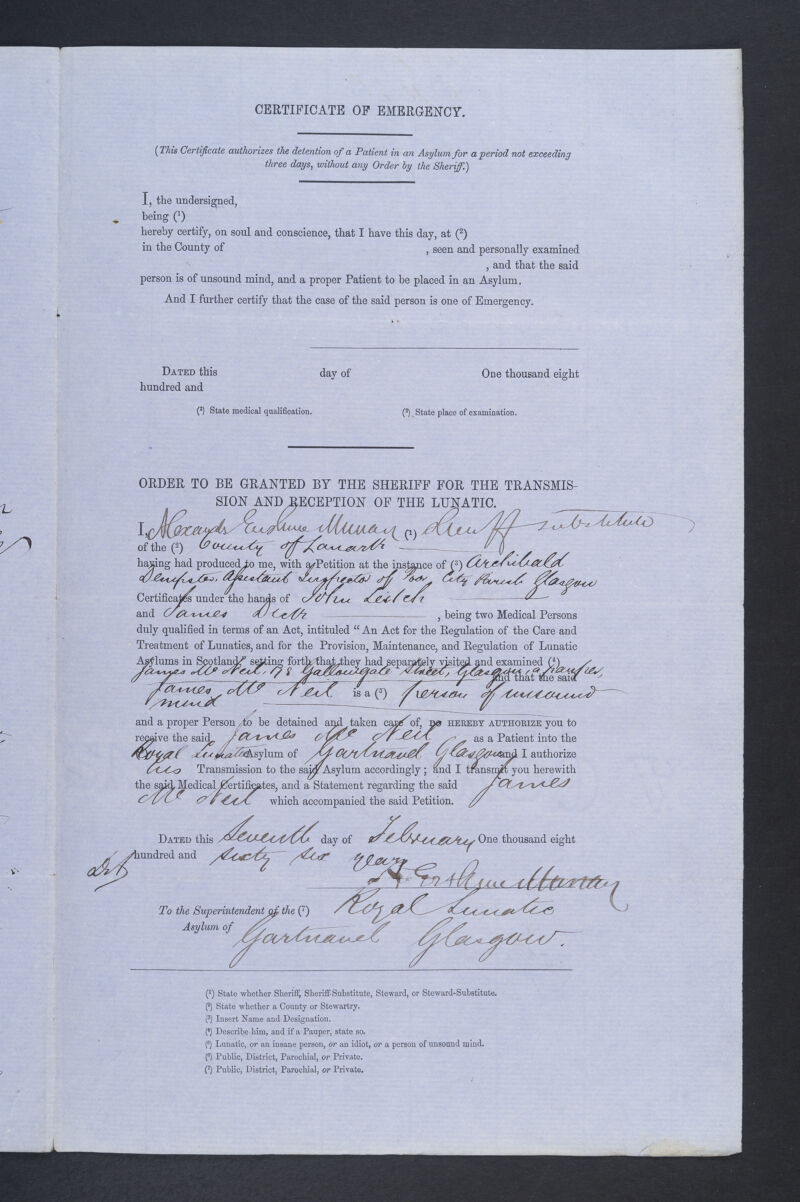 CERTIFICATE OF EMERGENCY.
(This Certificate authorizes the detention of a Patient in an Asylum for a period not exceeding
three days, without any Order by the Sheriff.)
I, the undersigned,
being (1)
hereby certify, on soul and conscience, that I have this day, at (2)
in the County of , seen and personally examined
, and that the said
person is of unsound mind, and a proper Patient to be placed in an Asylum.
And I further certify that the case of the said person is one of Emergency.
DATED this day of One thousand eight
hundred and
(1) State medical qualification. (2) State place of examination.
ORDER TO BE GRANTED BY THE SHERIFF FOR THE TRANSMIS-
SION AND RECEPTION OF THE LUNATIC.
I, Alexander Erskine Murray (1) Sheriff Substitute
of the (2) County of Lanark
having had produced to me, with a Petition at the instance of (3) Archibald
Dempster, Assistant Inspector of Poor, City Parish Glasgow
Certificates under the hands of John Leitch
and James Dick , being two Medical Persons
duly qualified in terms of an Act, intituled “An Act for the Regulation of the Care and
Treatment of Lunatics, and for the Provision, Maintenance, and Regulation of Lunatic
Asylums in Scotland,” setting forth that they had separately visited and examined (4)
James Mc Neil, 178 Gallowgate Street, Glasgow, a pauper and that the said
James Mc Neil is a (5) person of unsound
mind
and a proper Person to be detained and taken care of, DO HEREBY AUTHORIZE you to
receive the said James Mc Neil as a Patient into the
Royal Lunatic Asylum of Gartnavel Glasgow and I authorize
his Transmission to the said Asylum accordingly; and I transmit you herewith
the said Medical Certificates, and a Statement regarding the said James
Mc Neil which accompanied the said Petition.
DATED this Seventh day of February One thousand eight
hundred and sixty six years
A Erskine Murray
To the Superintendent of the (7) Royal Lunatic
Asylum of Gartnavel Glasgow.
(1) State whether Sheriff, Sheriff-Substitute, Steward, or Steward-Substitute.
(2) State whether a County or Stewartry.
(3) Insert Name and Designation.
(4) Describe him, and if a Pauper, state so.
(5) Lunatic, or an insane person, or an idiot, or a person of unsound mind.
(6) Public, District, Parochial, or Private.
(7) Public, District, Parochial, or Private.